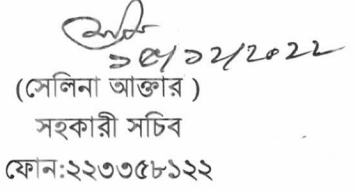 ১৫/১২/২০২২
(সেলিনা আক্তার )
সহকারী সচিব
ফোন:২২৩৩৫৮১২২